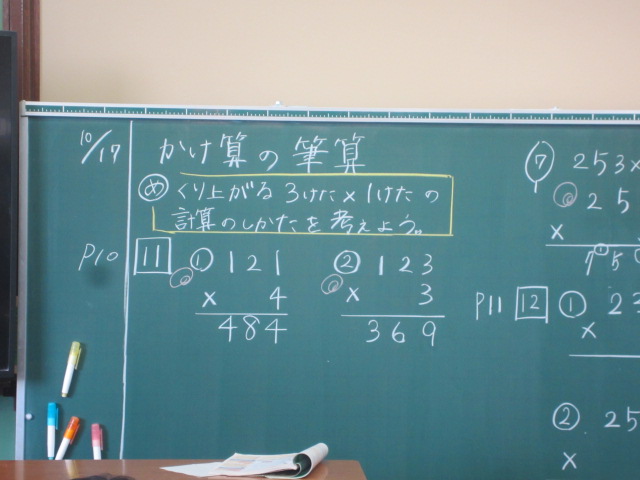 10/17
かけ算の筆算
め くり上がる 3けた×1けたの
計算のしかたを考えよう。
P10 11 ① 121
× 4
484
② 123
× 3
369
⑦ 253×
25
×
75
P11 12 ① 23
×
② 25
×